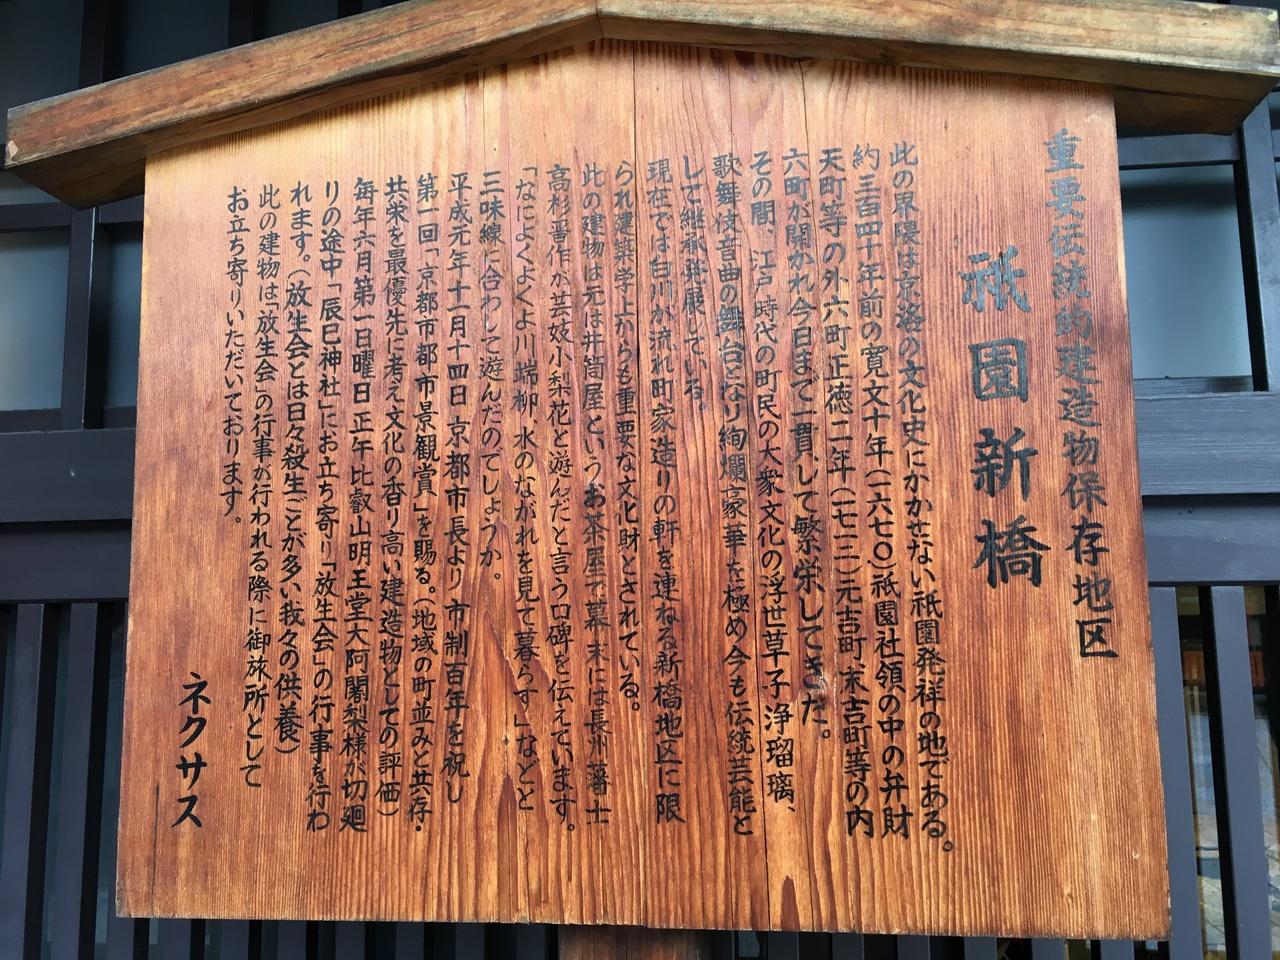 重要伝統的建造物保存地区
祇園新橋
此の界隈は京洛の文化史にかかせない祇園発祥の地である。
約三百四十年前の寛文十年(一六七〇)祇園社領の中の弁財
天町等の外六町正徳二年(一七一二)元吉町、末吉町等の内
六町が開かれ今日まで一貫して繁栄してきた。
その間 江戸時代の町民の大衆文化の浮世草子浄瑠璃、
歌舞伎音曲の舞台となり絢爛豪華を極め今も伝統芸能と
して継承発展している。
現在では白川が流れ町家造りの軒を連ねる新橋地区に限
られ建築学上からも重要な文化財とされている。
此の建物は元は井筒屋というお茶屋で幕末には長州藩士
高杉晋作が芸妓小梨花と遊んだと言う口碑を伝えています。
「なにをくよくよ川端柳 水のながれを見て暮らす」などと
三味線に合わして遊んだのでしょうか。
平成元年十一月十四日 京都市長より市制百年を祝し
第一回「京都市都市景観賞」を賜る。(地域の町並みと共存・
共栄を最優先に考え文化の香り高い建造物としての評価)
毎年六月第一日曜日 正午 比叡山明王堂大阿闍梨様が切廻
りの途中「辰巳神社」にお立ち寄り「放生会」の行事を行わ
れます。(放生会とは日々殺生ごとが多い我々の供養)
此の建物は「放生会の行事が行われる際に御旅所として
お立ち寄りいただいております。
ネクサス